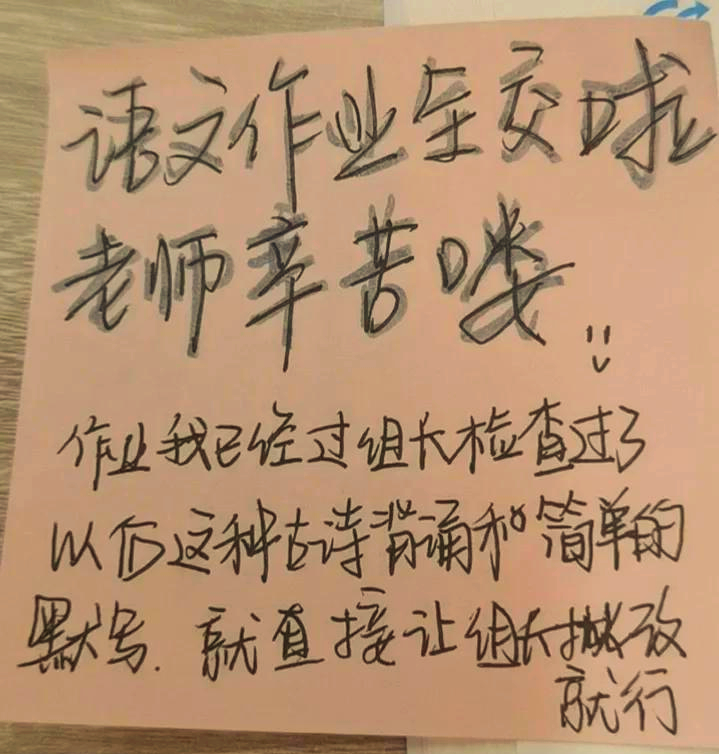 语文作业全交啦
老师辛苦喽
作业我已经过组长检查过了
以后这种古诗背诵和简单的
默写.就直接让组长批改
就行